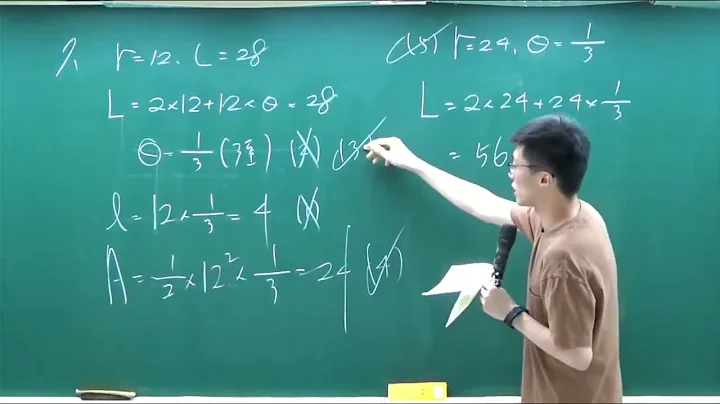 7. r=12、L=28
L=2×12+12×θ=28
θ=1/3(弳) (2) (3)
l=12×1/3=4 (1)
A=1/2×12²×1/3=24 (4)
(5) r=24、θ=1/3
L=2×24+24×1/3
=56